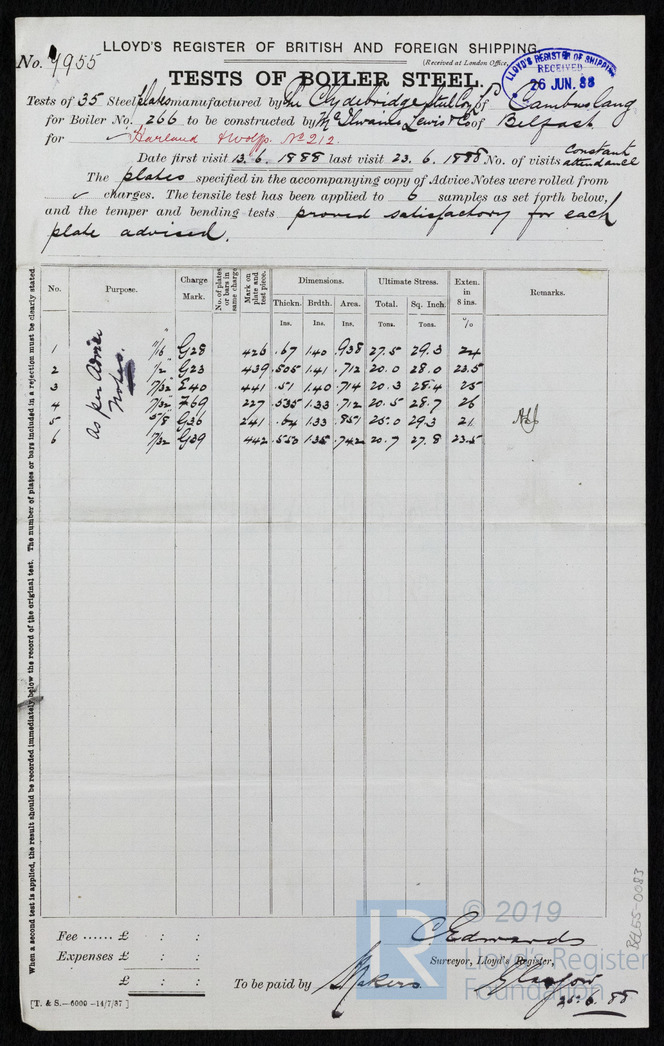 LLOYD'S REGISTER OF BRITISH AND FOREIGN SHIPPING.
No. 4955
(Received at London Office,
LLOYD'S REGISTER OF SHIPPING
RECEIVED
26 JUN. 88
TESTS OF BOILER STEEL.
Tests of 35 Steel Plates manufactured by The Clydebridge Steel Coy Ld of Cambuslang
for Boiler No. 266 to be constructed by McIlwaine Lewis & Co of Belfast
for Harland & Wolff. No 212.
Date first visit 13. 6. 1888 last visit 23. 6. 1888 No. of visits Constant attendance
The plates specified in the accompanying copy of Advice Notes were rolled from
charges. The tensile test has been applied to 6 samples as set forth below,
and the temper and bending tests proved satisfactory for each
plate advised.
When a second test is applied, the result should be recorded immediately below the record of the original test. The number of plates or bars included in a rejection must be clearly stated.
No. Purpose. Charge Mark. No. of plates or bars in same charge Mark on plate and test piece. Dimensions. Ultimate Stress. Exten. in 8 ins. Remarks.
Thickn. Brdth. Area. Total. Sq. Inch.
Ins. Ins. Ins. Tons. Tons. %
as per Advice Notes.
1 11/16 G28 426 .67 1.40 .938 27.5 29.3 24
2 1/2 G23 439 .505 1.41 .712 20.0 28.0 23.5
3 17/32 E40 441 .51 1.40 .714 20.3 28.4 25
4 17/32 F69 227 .535 1.33 .712 20.5 28.7 26
5 5/8 G36 241 .64 1.33 .851 25.0 29.3 21
6 17/32 G39 442 .553 1.35 .742 20.7 27.8 23.5
Fee ...... £ : :
Expenses £ : :
£ : :
To be paid by Makers
C. Edwards
Surveyor, Lloyd's Register,
Glasgow
25. 6. 88
[T. & S.—6000—14/7/37.]
BEL55-0083
© 2019
LR
Lloyd's Register
Foundation